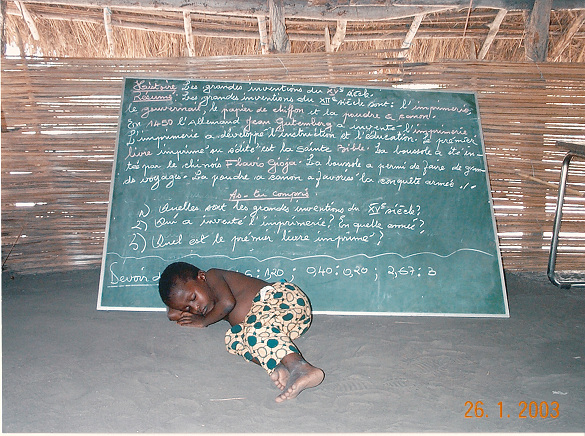 Histoire: Les grandes inventions du XVe siècle.
Résumé: Les grandes inventions du XIIe siècle sont: l'imprimerie,
le gouvernail, le papier de chiffon et la poudre à canon.
En 1450 l'Allemand Jean Gutemberg a inventé l'imprimerie.
L'imprimerie a développé l'instruction et l'éducation. Le prémier
livre imprimé ou édité est la sainte Bible. La boussole a été in-
té par le chinois Flavio Gioja. La boussole a permi de faire de gran
de voyages. La poudre à canon a favorisé la conquête armée.
As-tu compris
1) Quelles sont les grandes inventions du XVe siècle?
2) Qui a inventé l'imprimerie? En quelle année?
3) Quel est le prémier livre imprimé?
Devoir 1,20; 0,40: 0,20; 2,67: 3
26. 1. 2003